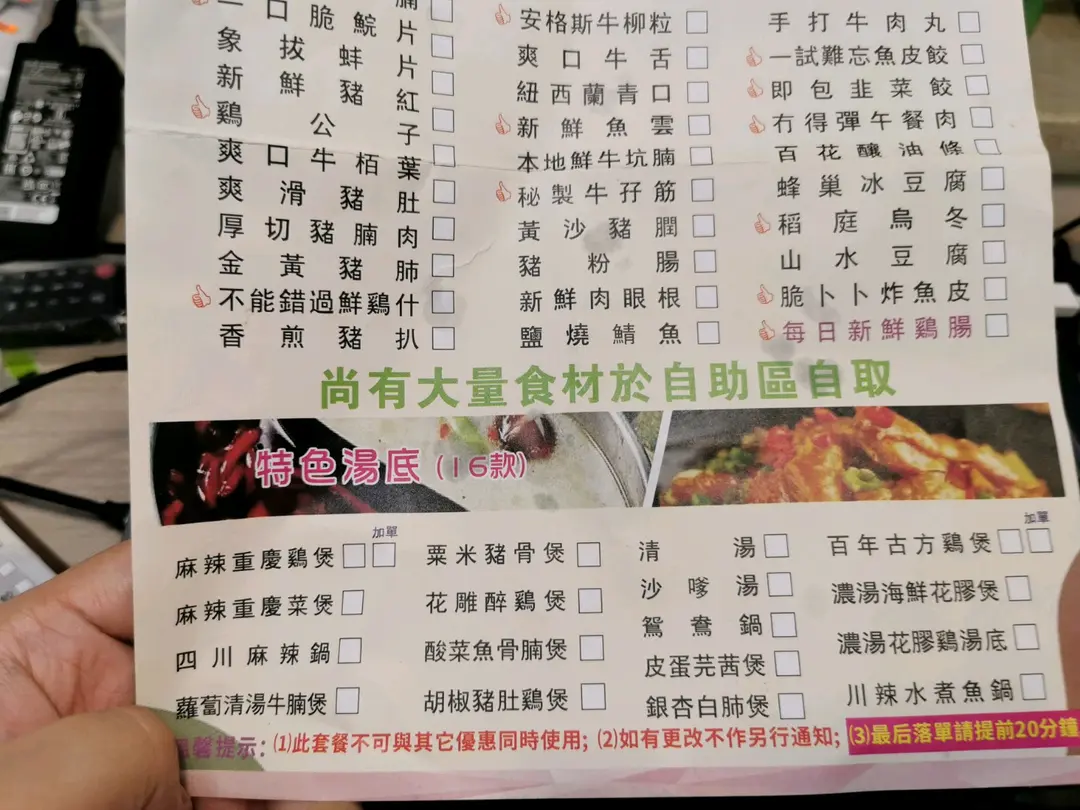 口脆鯇腩片
象拔蚌片
新鮮豬紅
鷄公子
爽口牛栢葉
爽滑豬肚
厚切豬腩肉
金黃豬肺
不能錯過鮮鷄什
香煎豬扒
安格斯牛柳粒
爽口牛舌
紐西蘭青口
新鮮魚雲
本地鮮牛坑腩
秘製牛孖筋
黃沙豬膶
豬粉腸
新鮮肉眼根
鹽燒鯖魚
手打牛肉丸
一試難忘魚皮餃
即包韭菜餃
冇得彈午餐肉
百花釀油條
蜂巢冰豆腐
稻庭烏冬
山水豆腐
脆卜卜炸魚皮
每日新鮮鷄腸
尚有大量食材於自助區自取
特色湯底(16款)
加單
麻辣重慶鷄煲
麻辣重慶菜煲
四川麻辣鍋
蘿蔔清湯牛腩煲
粟米豬骨煲
花雕醉鷄煲
酸菜魚骨腩煲
胡椒豬肚鷄煲
清湯
沙嗲湯
鴛鴦鍋
皮蛋芫茜煲
銀杏白肺煲
加單
百年古方鷄煲
濃湯海鮮花膠煲
濃湯花膠鷄湯底
川辣水煮魚鍋
馨提示：(1)此套餐不可與其它優惠同時使用; (2)如有更改不作另行通知; (3)最后落單請提前20分鐘